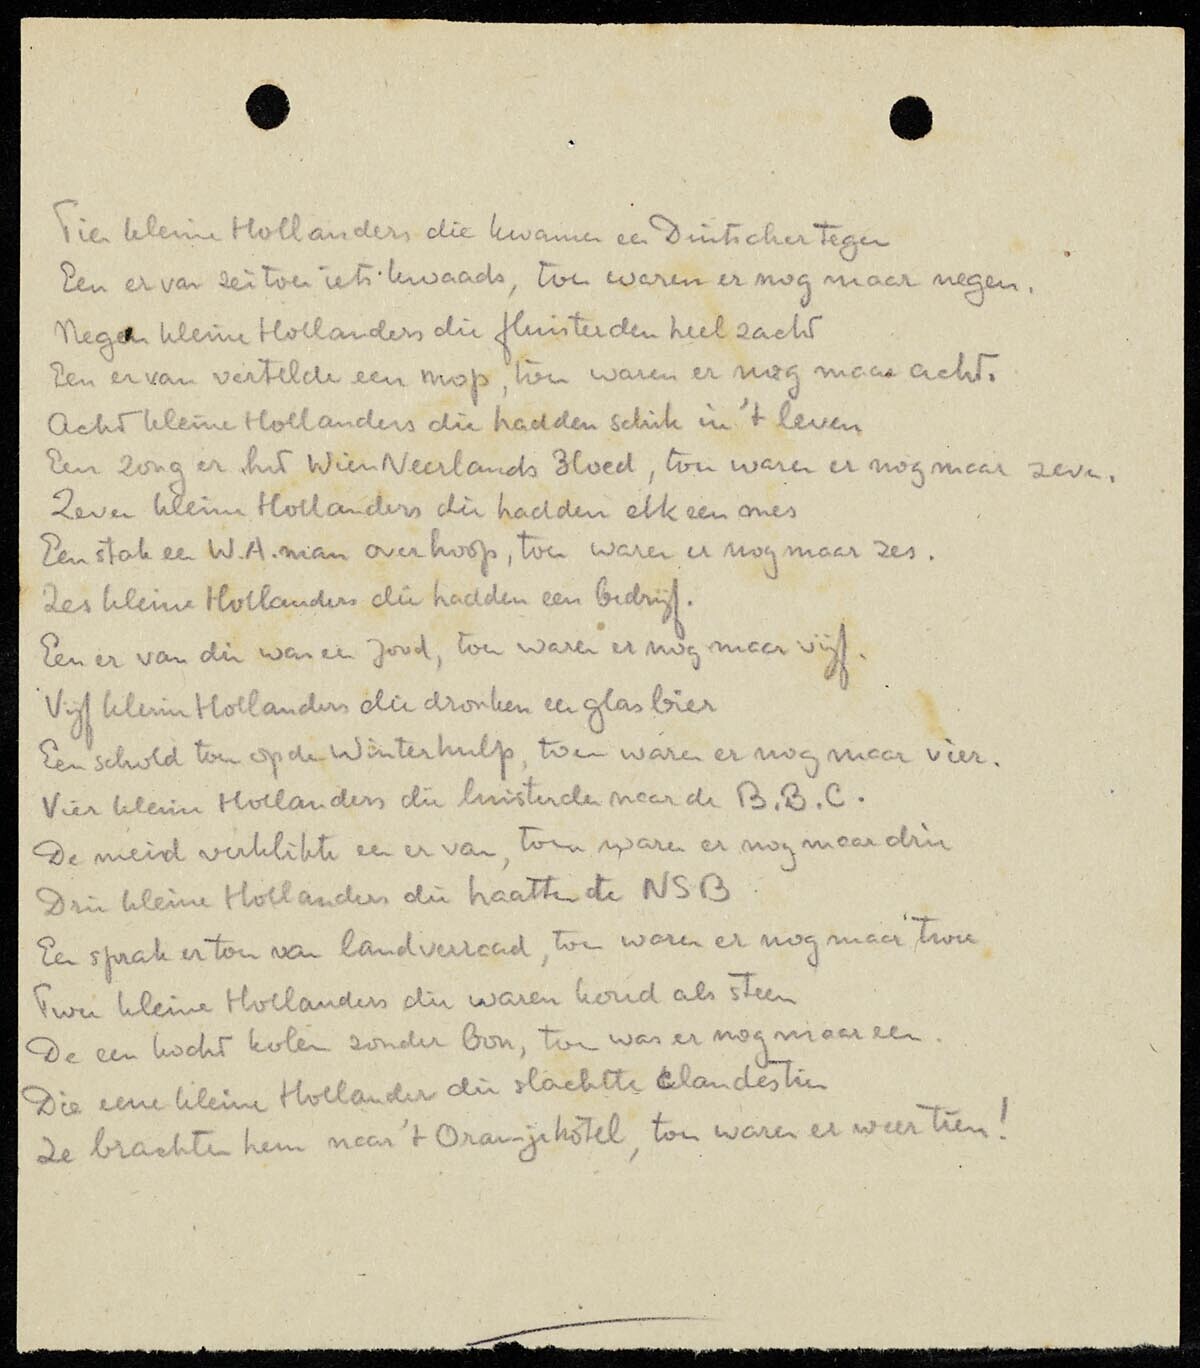 Tien kleine Hollanders die kwamen een Duitscher tegen
Een er van zei toen iets kwaads, toen waren er nog maar negen.
Negen kleine Hollanders die fluisterden heel zacht
Een er van vertelde een mop, toen waren er nog maar acht.
Acht kleine Hollanders die hadden schik in 't leven
Een zong er het Wien Neerlands Bloed, toen waren er nog maar zeven.
Zeven kleine Hollanders die hadden elk een mes
Een stak een W.A. man overhoop, toen waren er nog maar zes.
Zes kleine Hollanders die hadden een bedrijf.
Een er van die was een Jood, toen waren er nog maar vijf.
Vijf kleine Hollanders die dronken een glas bier
Een schold toen op de Winterhulp, toen waren er nog maar vier.
Vier kleine Hollanders die luisterden naar de B.B.C.
De meid verklikte een er van, toen waren er nog maar drie
Drie kleine Hollanders die haatten de NSB
Een sprak er toen van landverraad, toen waren er nog maar twee
Twee kleine Hollanders die waren koud als steen
De een kocht kolen zonder bon, toen was er nog maar een.
Die eene kleine Hollander die slachtte clandestien
Ze brachten hem naar 't Oranjehôtel, toen waren er weer tien!